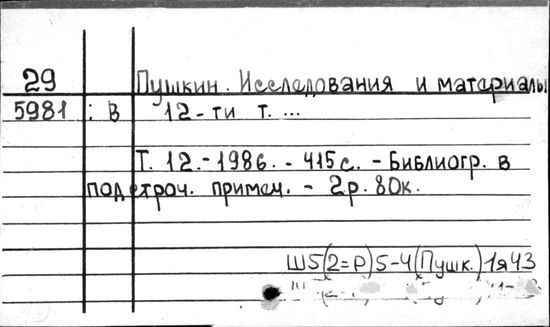 29 Пушкин. Исследования и материалы
5981 : В 12-ти т. ...
Т. 12.-1986. - 415 с. - Библиогр. в
подстроч. примеч. - 2р. 80к.
Ш5(2=Р)5-4(Пушк.)1я43